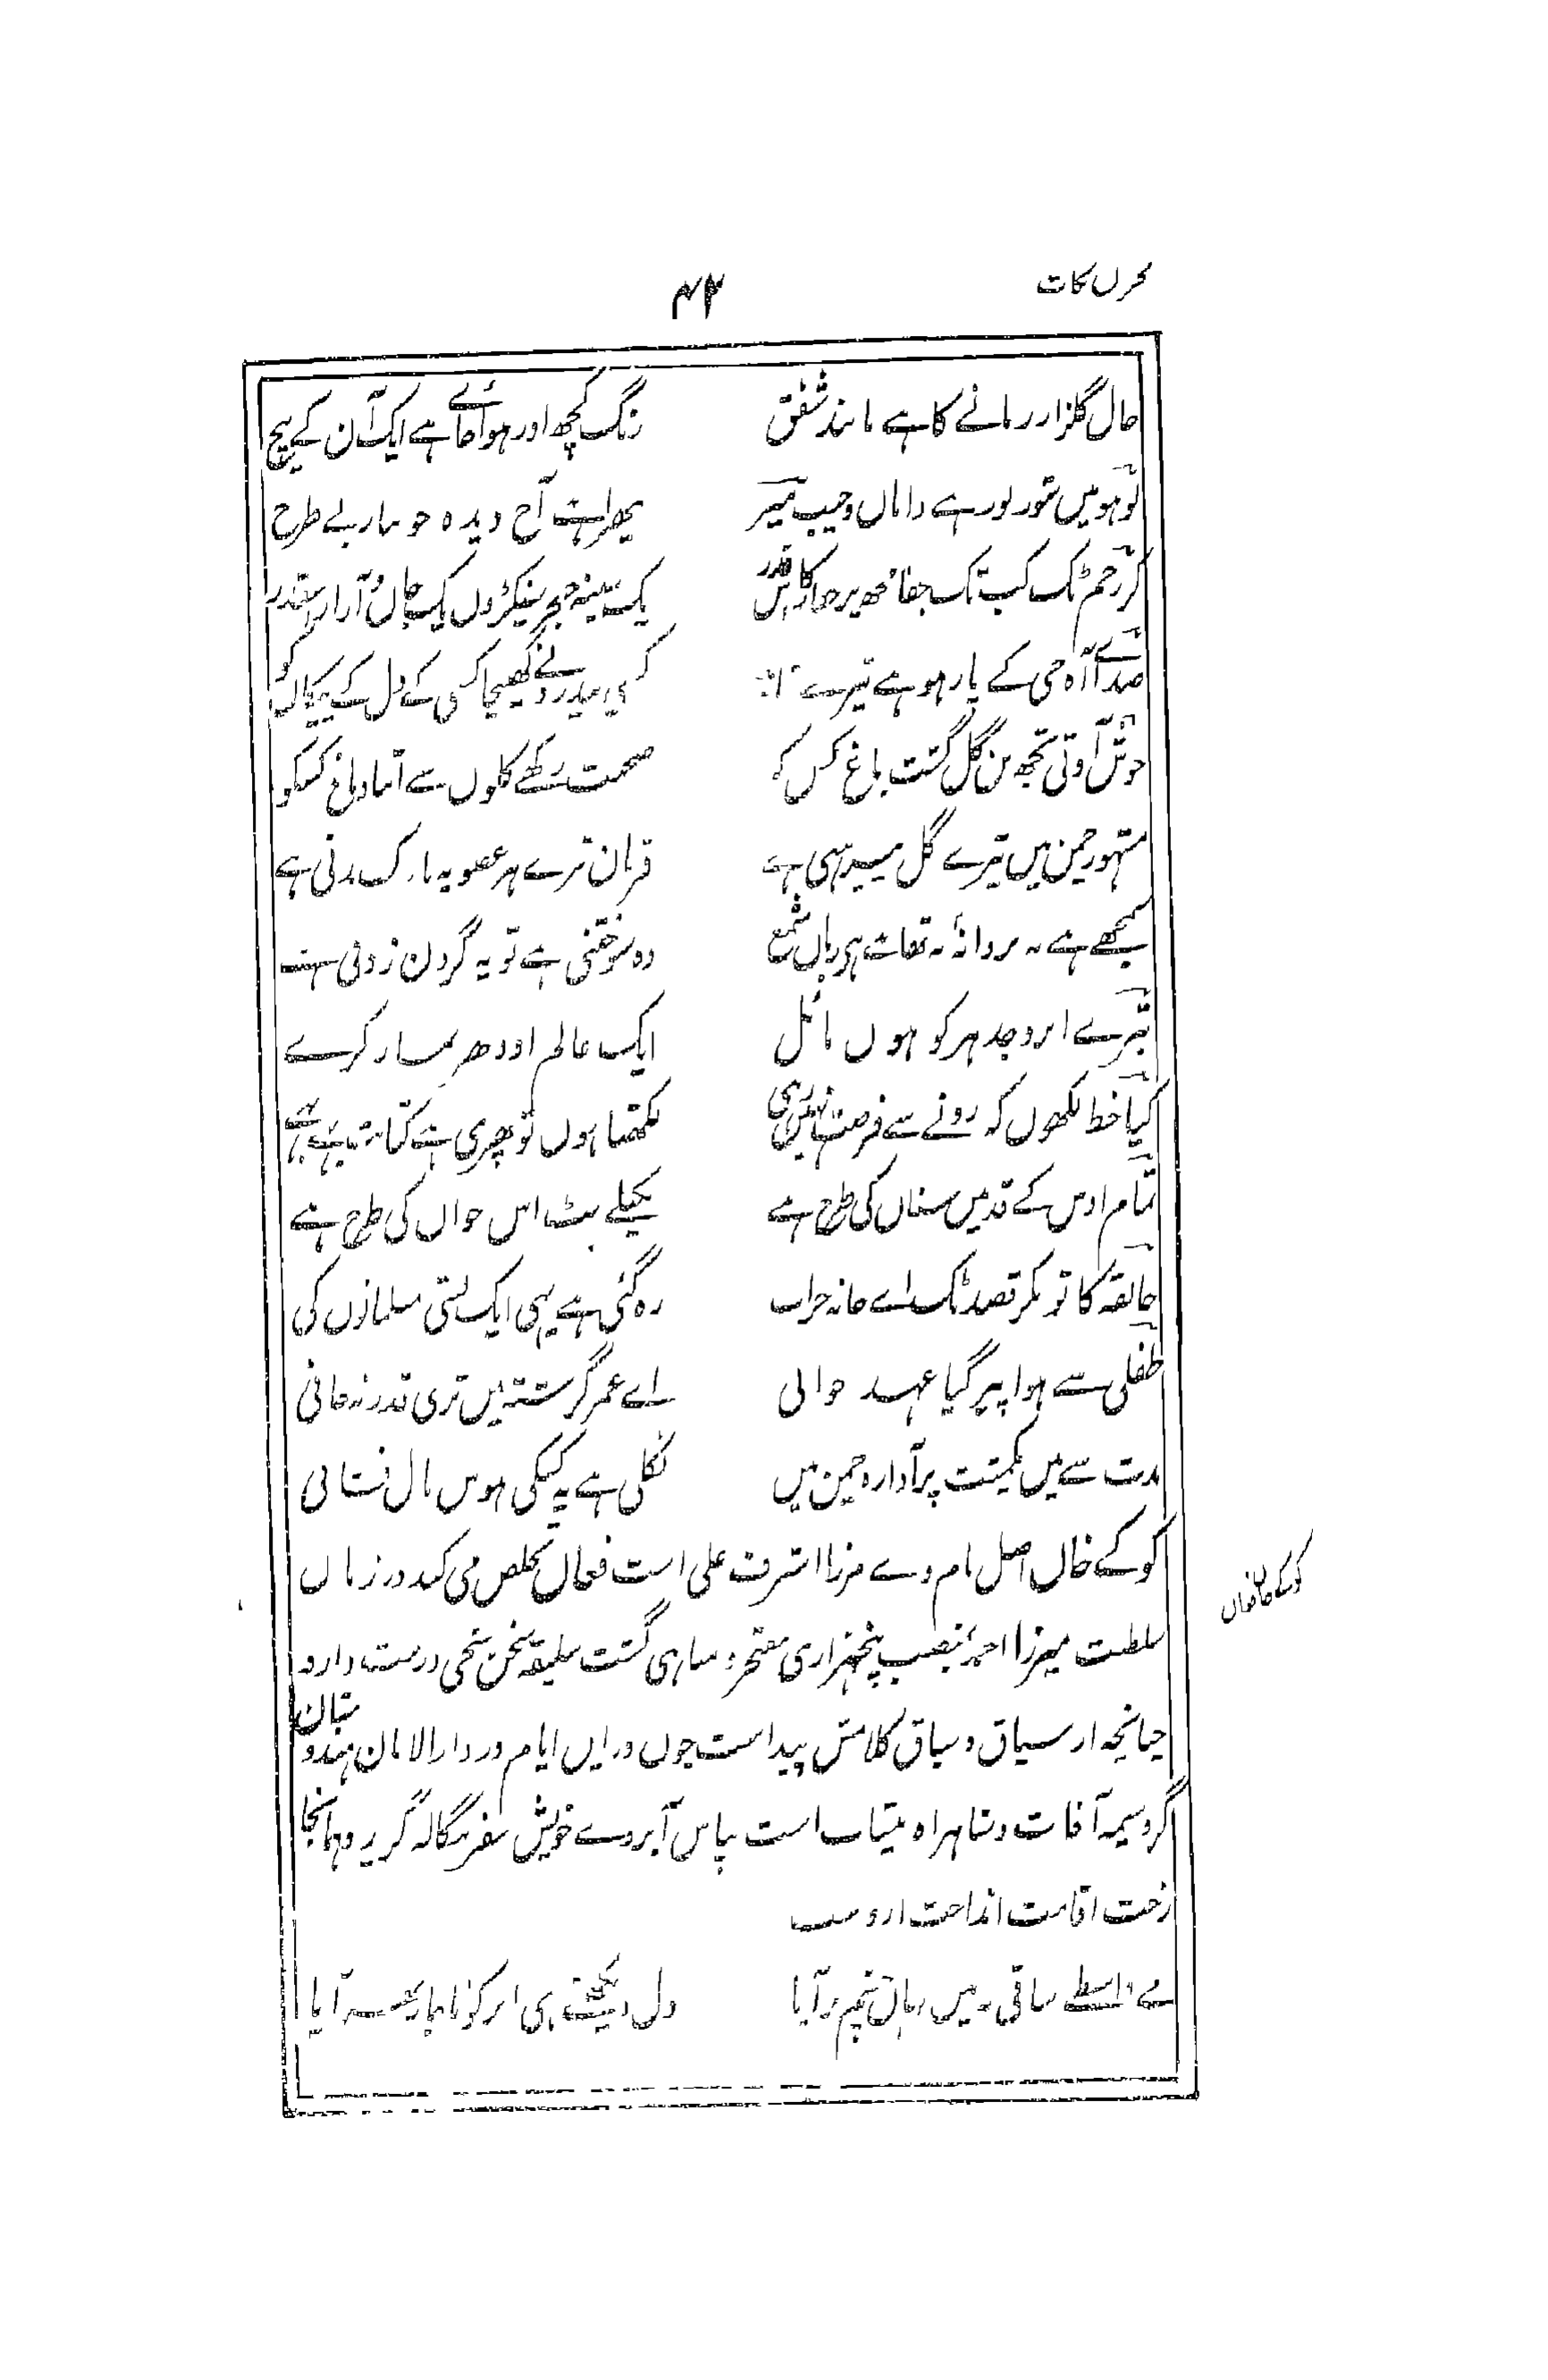 مخزن نکات
۷۳
حال گلزار زمانے کا ہے مانند شفق رنگ کچھ اور ہو جائے ہے ایک آن کے بیچ
لوہو میں شور بور ہے داماں و جیب میر بھرا ہے آج دیدہ خونبار بے طرح
کر رحم ٹک کب تک جفا مجھ پر جفا کار اس قدر یک سینہ خنجر سینکڑوں یک جان و آزار اسقدر
صدائے آہ جی کے پار ہو ہے تیر سی کسی بیدرد نے کھینچا کسی کے دل کے پیکاں کو
خوش آوتی تجھ بن گل گشت باغ کس کو صحبت رکھے گلوں سے اتنا دماغ کسکو
مشہور چمن میں تیرے گل پیرہنی ہے قربان ترے ہر عضو پہ نازک بدنی ہے
سمجھے ہے نہ پروانہ نہ تھامے ہے زباں شمع وہ سوختنی ہے تو یہ گردن زدنی ہے
تیرے ابرو جدہر کو ہوں مائل ایک عالم اودھر نماز کرے
کیا خط لکھوں کہ رونے سے فرصت نہیں رہی لکھتا ہوں تو پھری ہے کتابت بہی بہی
تمام اوس کے قد میں سناں کی طرح ہے نکیلے نپٹ اس جواں کی طرح ہے
خانقہ کا تو نکر قصد ٹک اے خانہ خراب رہ گئی ہے یہی ایک بستی مسلمانوں کی
طفلی سے ہوا پیر گیا عہد جوانی اے عمر گزشتہ میں تری قدر نہ جانی
مدت سے میں یکمشت پر آوارہ چمن میں نکلی ہے یہ کسکی ہوس بال فشانی
کوکے خاں اصل نام وے مرزا اشرف علی است فغاں تخلص می کند در زمان
سلطنت میرزا احمد بمنصب پنجہزاری مفتخر و مباہی گشت سلیقہ سخن سنجی درست دارد
چنانچہ از سیاق و سباق کلامش پیداست چوں دریں ایام در دارالامان ہندوستان
گرد سیمہ آفات و شاہراہ بیتاب است بپاس آبروے خویش سفر بنگالہ گزید و ہمانجا
رخت اقامت انداخت ازوست
مے واسطے ساقی نہ میں یہاں چشم تر آیا دل دیکھتے ہی ابر کو ناچار بھر آیا
کوکے خاں فغاں